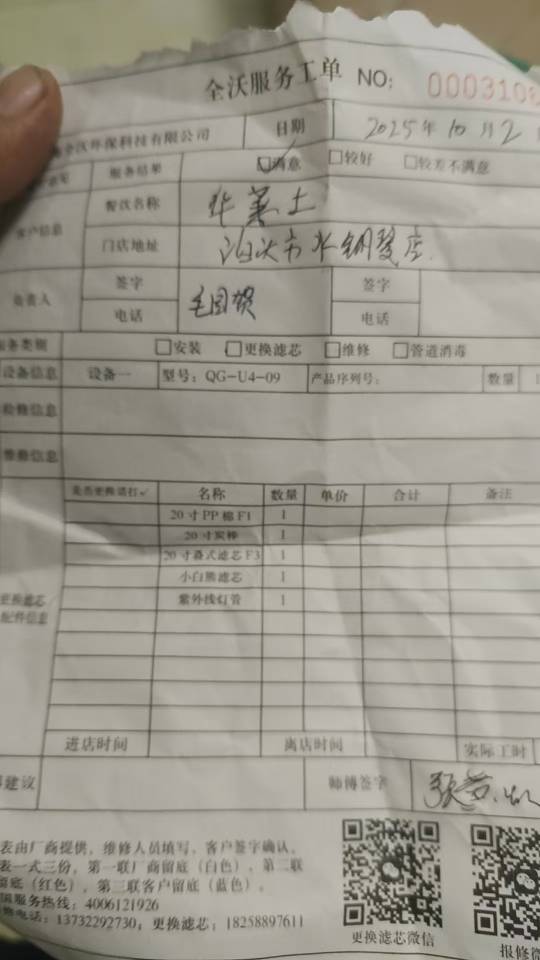 全沃服务工单 NO: 000310
全沃环保科技有限公司 日期 2025年10月2
服务结果 ☑满意 □较好 □较差不满意
客户信息 餐饮名称 华莱士
门店地址 泊头市水钢琴店
负责人 签字 签字
电话 电话
服务类别 □安装 □更换滤芯 □维修 □管道消毒
设备信息 设备一 型号: QG-U4-09 产品序列号: 数量
检修信息
维修信息
是否更换请打✓ 名称 数量 单价 合计 备注
20寸PP棉F1 1
20寸炭棒 1
20寸叠式滤芯F3 1
小白熊滤芯 1
紫外线灯管 1
更换滤芯
配件信息
进店时间 离店时间 实际工时
建议 师傅签字
表由厂商提供, 维修人员填写, 客户签字确认。
表一式三份, 第一联厂商留底(白色), 第二联
留底(红色), 第三联客户留底(蓝色)。
国服务热线: 4006121926
电话: 13732292730, 更换滤芯: 18258897611
更换滤芯微信 报修微